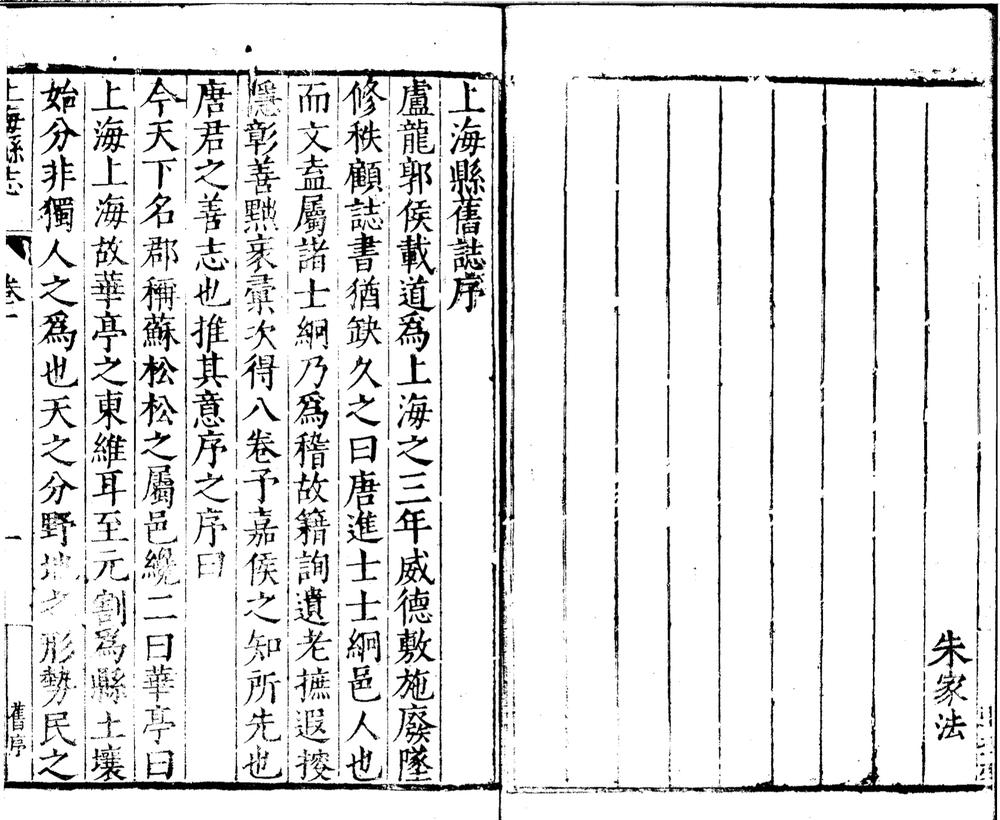 朱家法
上海縣舊誌序
盧龍郭侯載道爲上海之三年威德敷施廢墜
修秩顧誌書猶缺久之曰唐進士士絅邑人也
而文盍屬諸士絅乃爲稽故籍詢遺老摭遐捘
隱彰善黜衺彙次得八卷予嘉侯之知所先也
唐君之善志也推其意序之序曰
今天下名郡稱蘇松松之屬邑纔二曰華亭曰
上海上海故華亭之東維耳至元割爲縣土壤
始分非獨人之爲也天之分野地之形勢民之
上海縣志
卷一
一
舊序